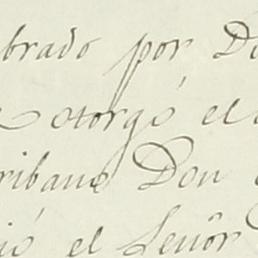 brado por D
otorgó el
ribano Don
ió el Señor